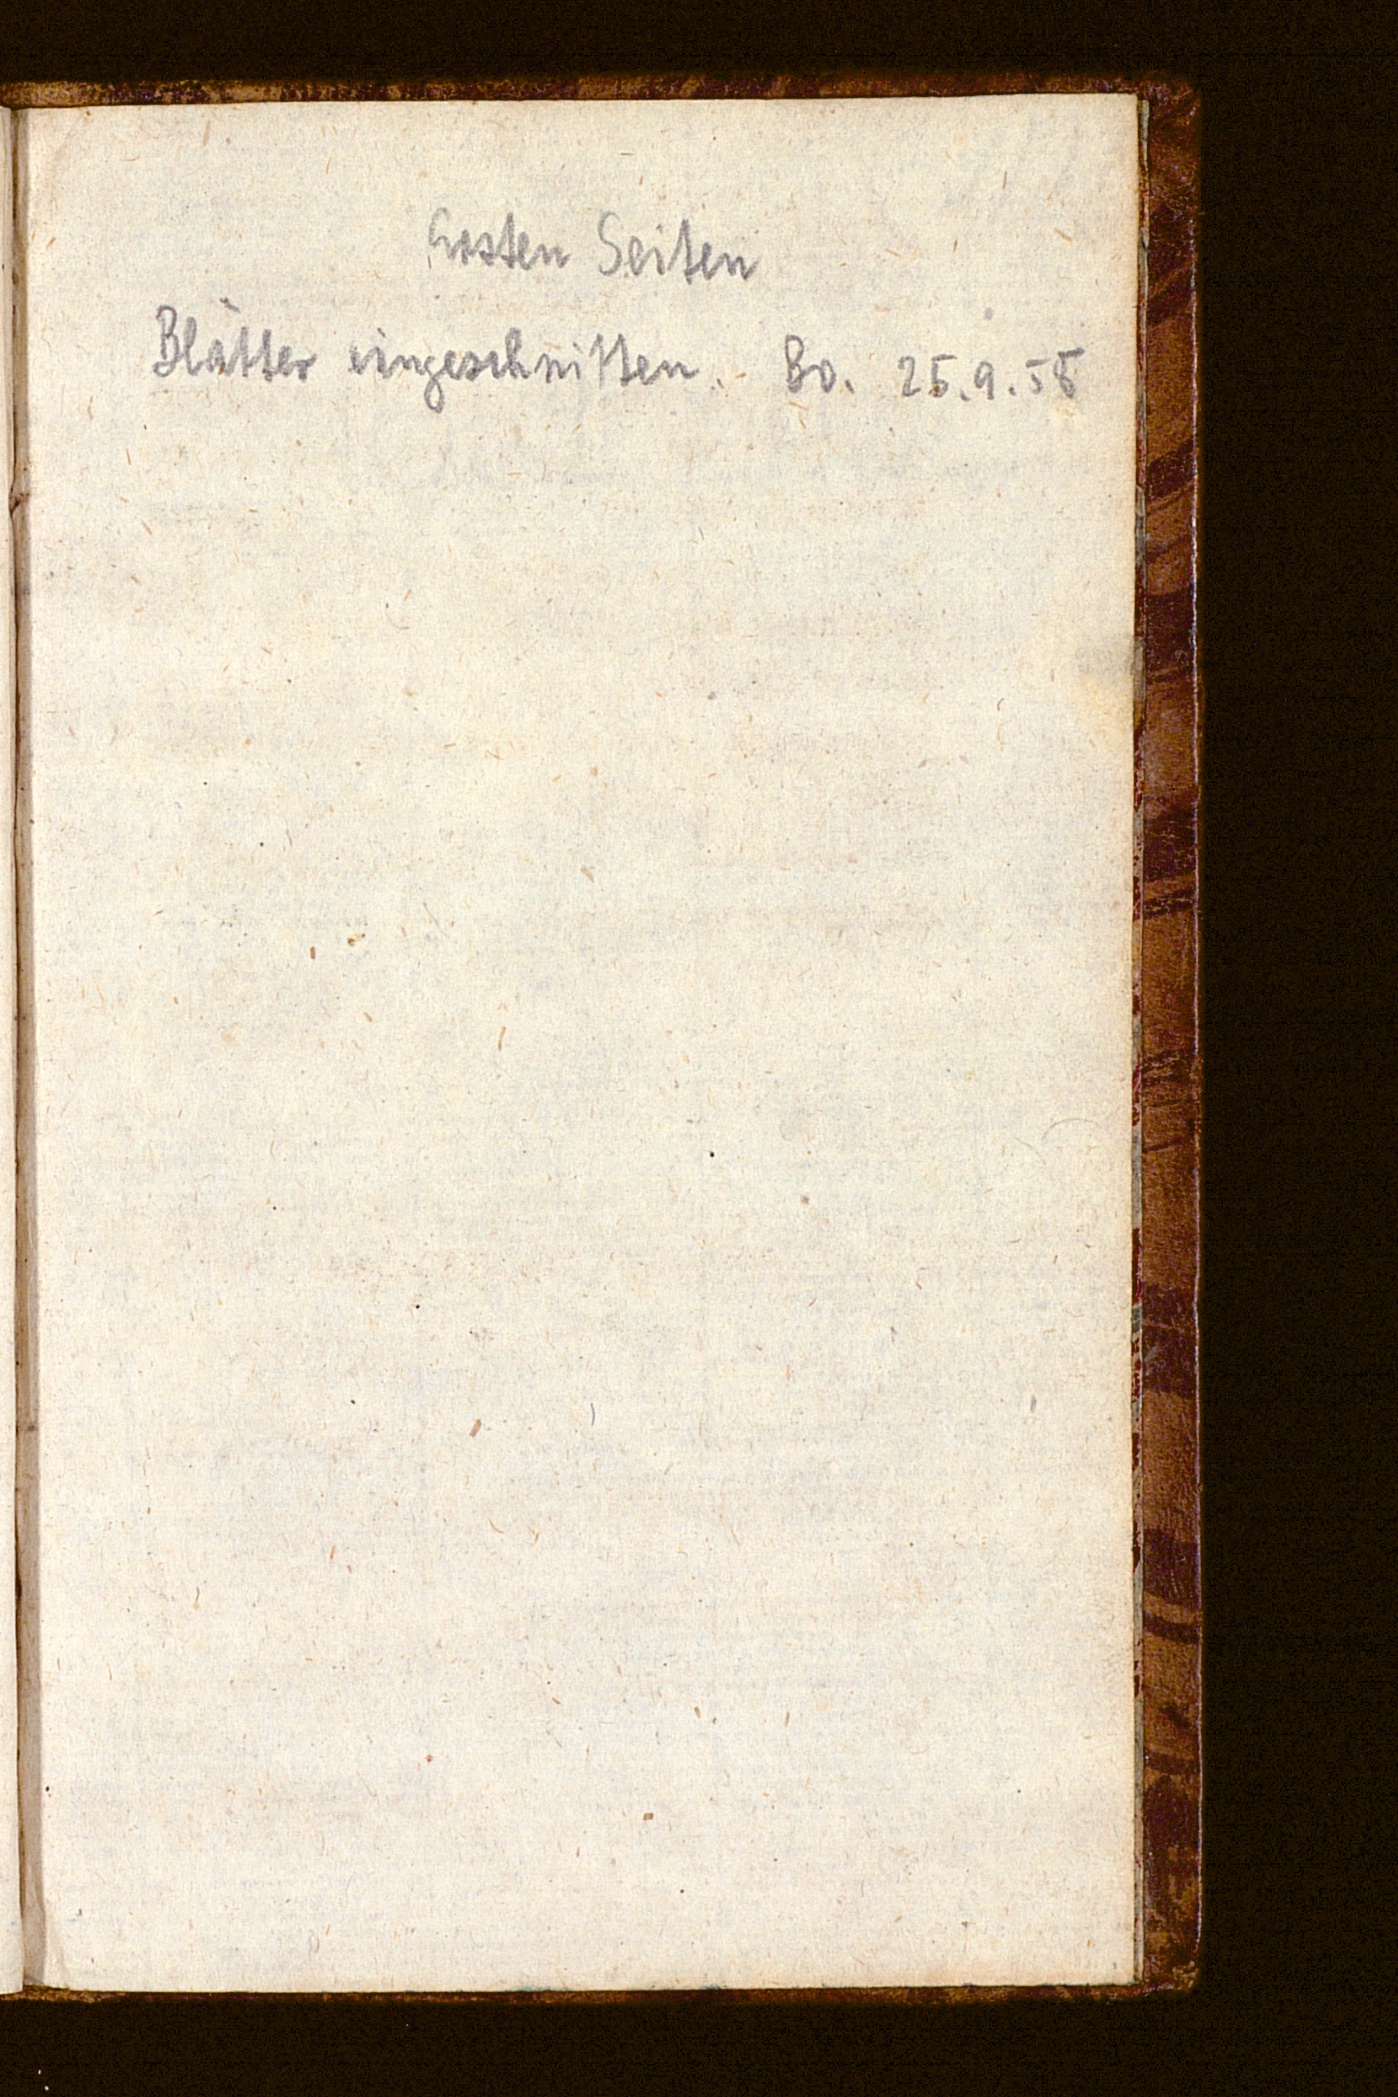 Ersten Seiten
Blätter eingeschnitten. Bo. 25.9.58